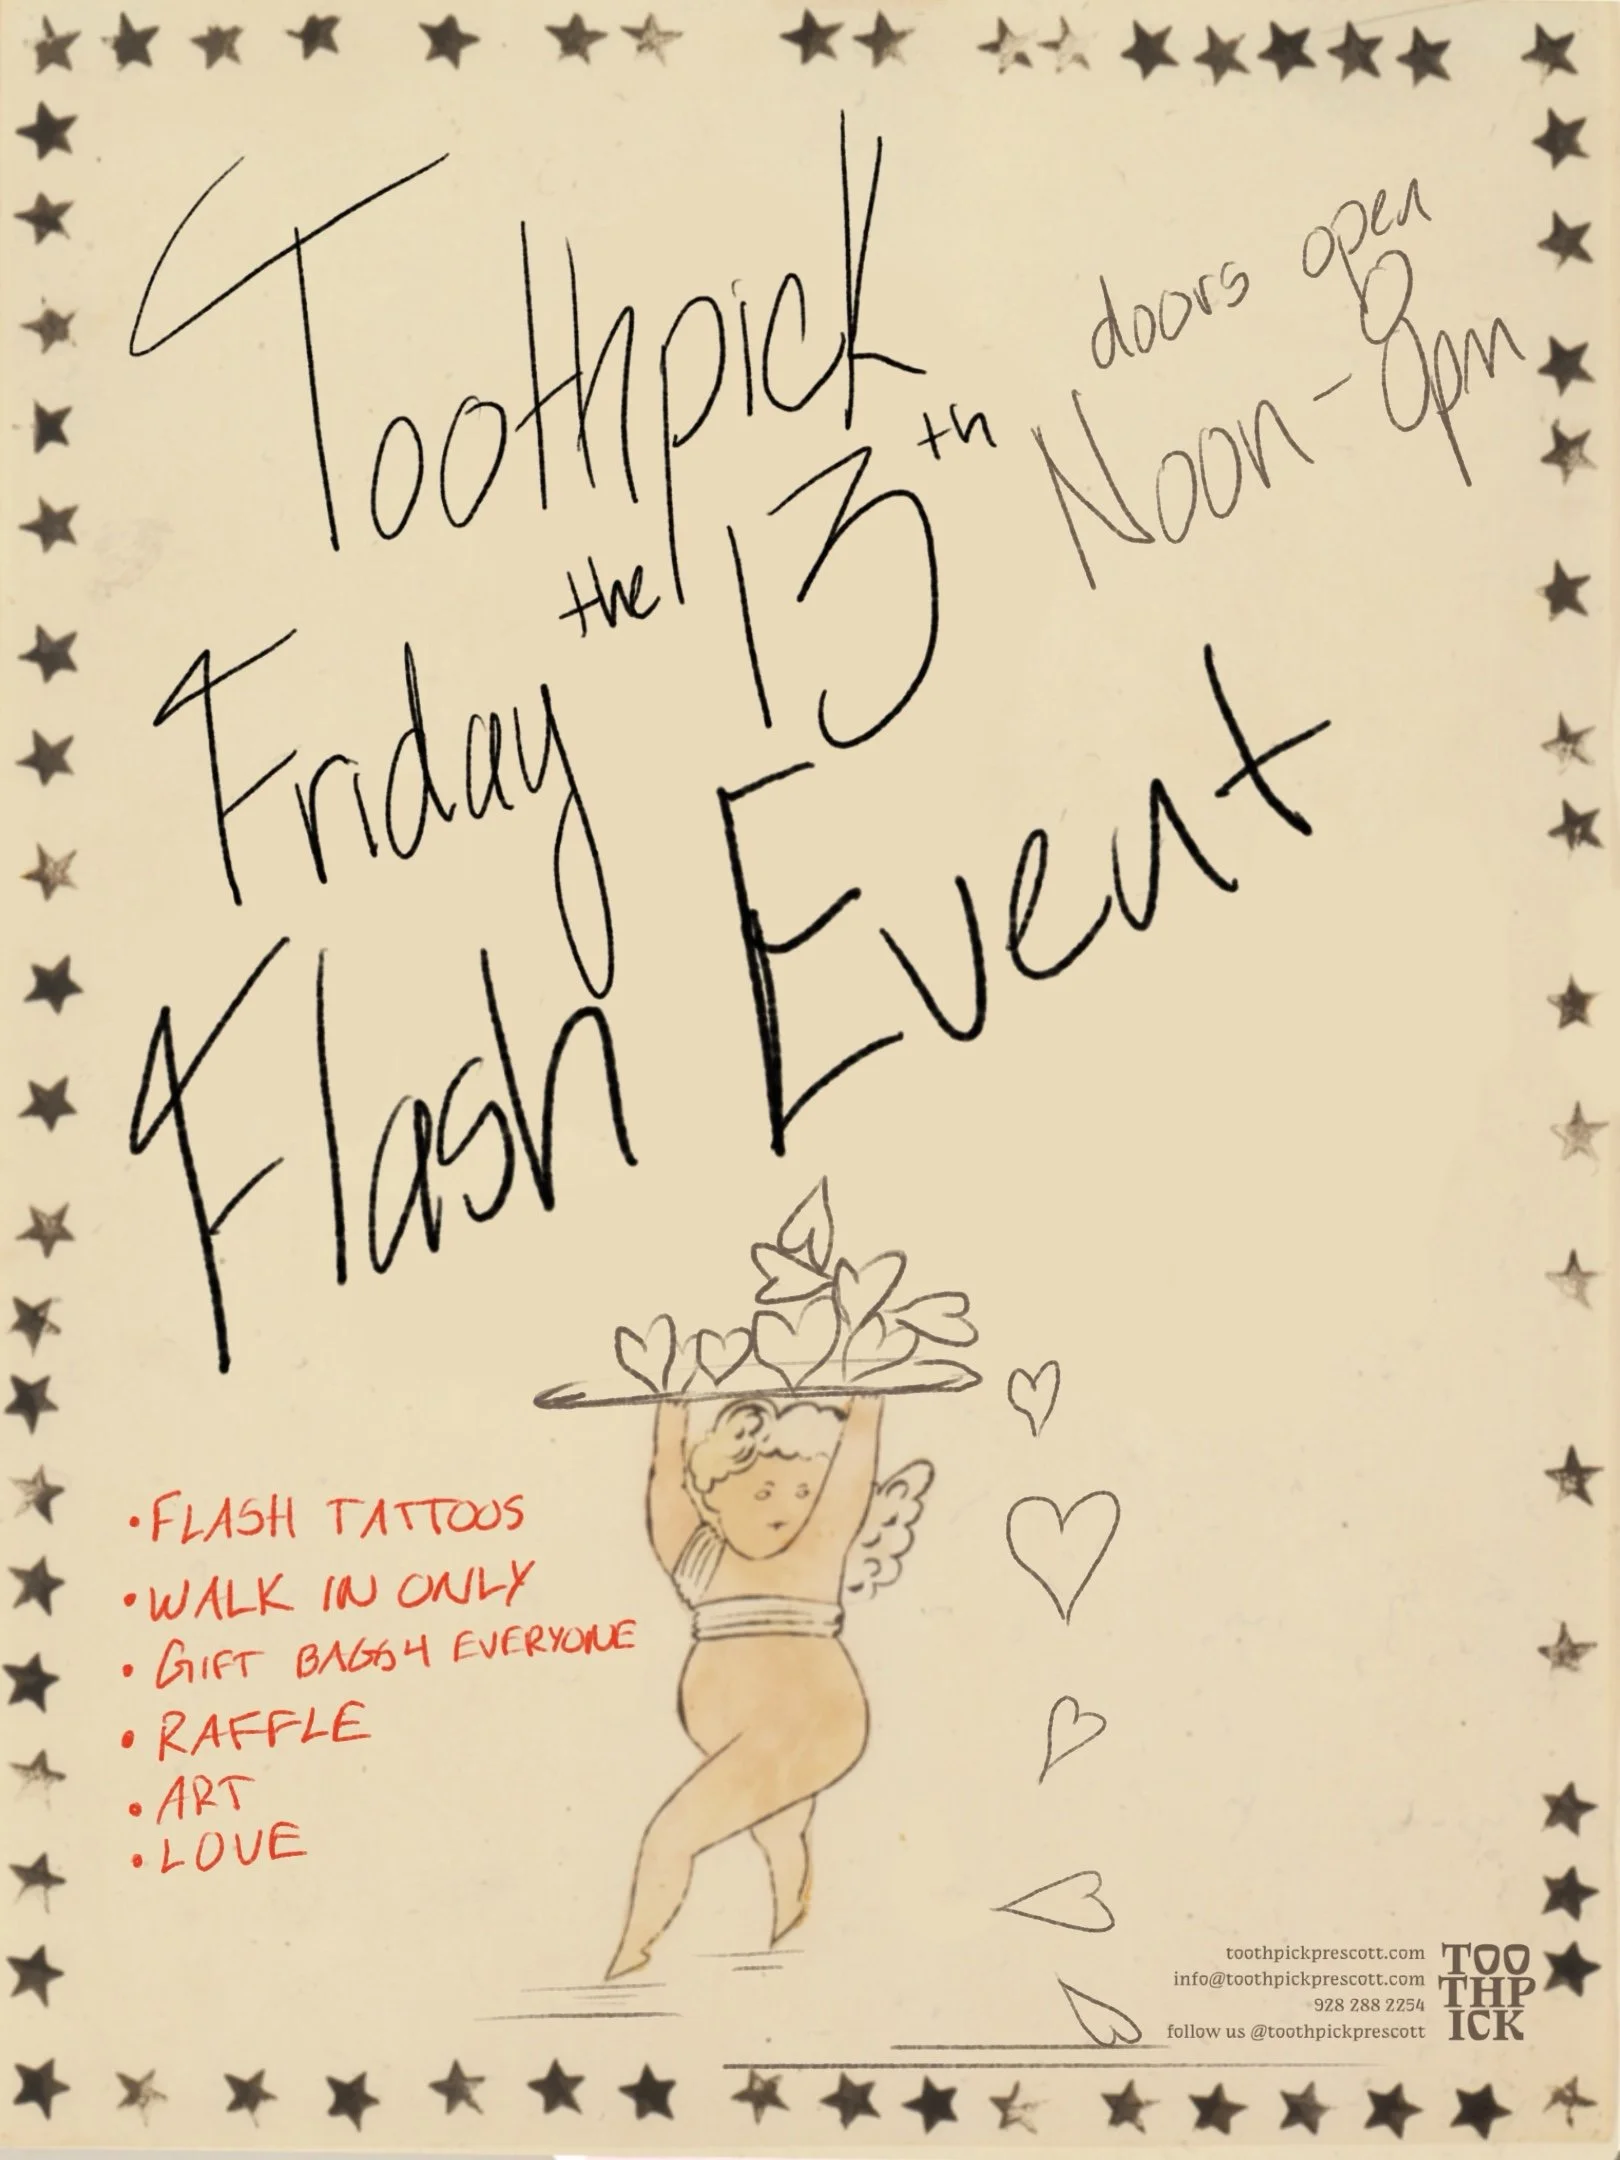 Toothpick
doors open
Noon - 8pm
Friday the 13th
Flash Event
• FLASH TATTOOS
• WALK IN ONLY
• GIFT BAGS 4 EVERYONE
• RAFFLE
• ART
• LOVE
toothpickprescott.com
info@toothpickprescott.com
928 288 2254
follow us @toothpickprescott
TOO
THP
ICK